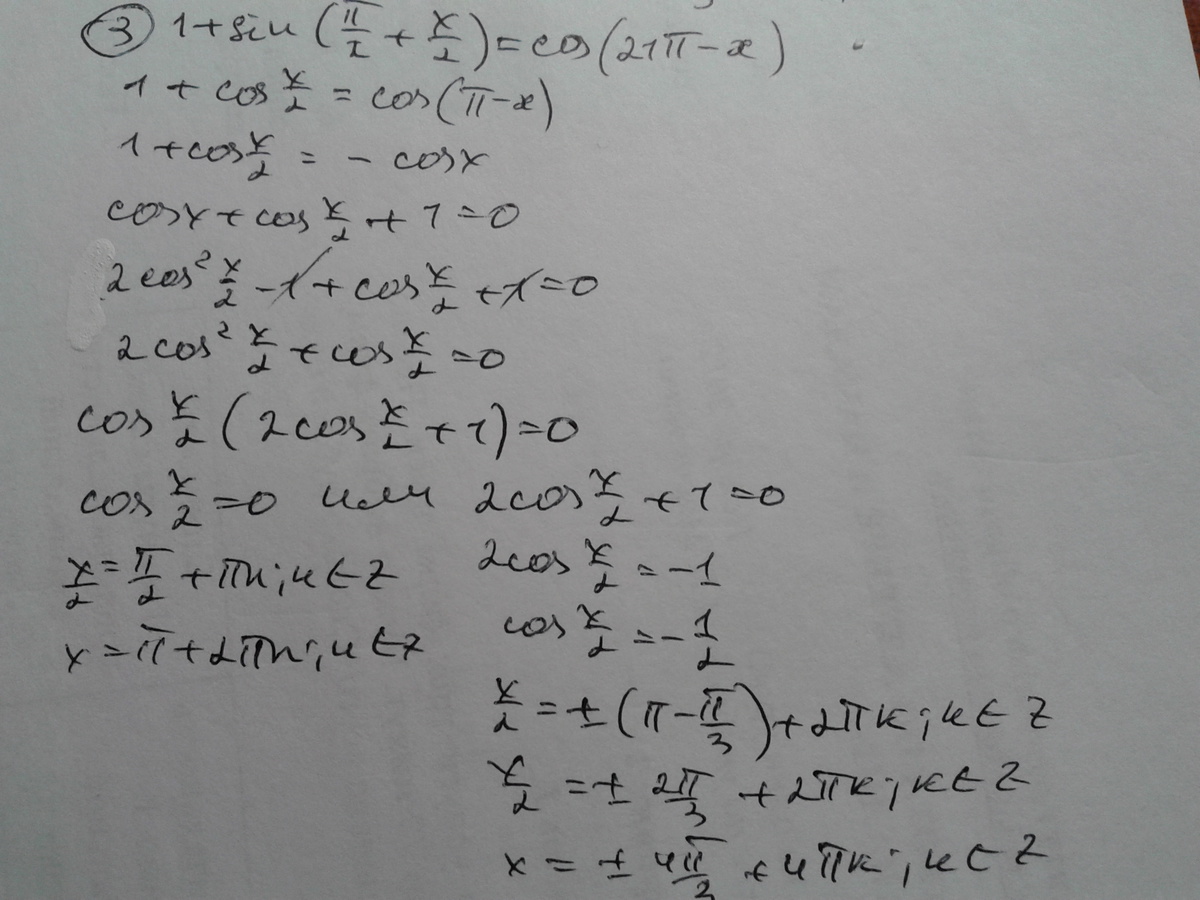 ③ 1+sin(π/2 + x/2)=cos(21π-x)
1 + cos x/2 = cos(π-x)
1+cos x/2 = - cosx
cosx + cos x/2 + 1 =0
2cos² x/2 -1 + cos x/2 +1=0
2cos² x/2 + cos x/2 =0
cos x/2 (2cos x/2 +1)=0
cos x/2 =0 или 2cos x/2 +1=0
x/2 = π/2 +πn; n∈Z 2cos x/2 = -1
x = π+2πn; n∈Z cos x/2 = -1/2
x/2 = ±(π-π/3)+2πk; k∈Z
x/2 = ± 2π/3 +2πk; k∈Z
x = ± 4π/3 +4πk; k∈Z